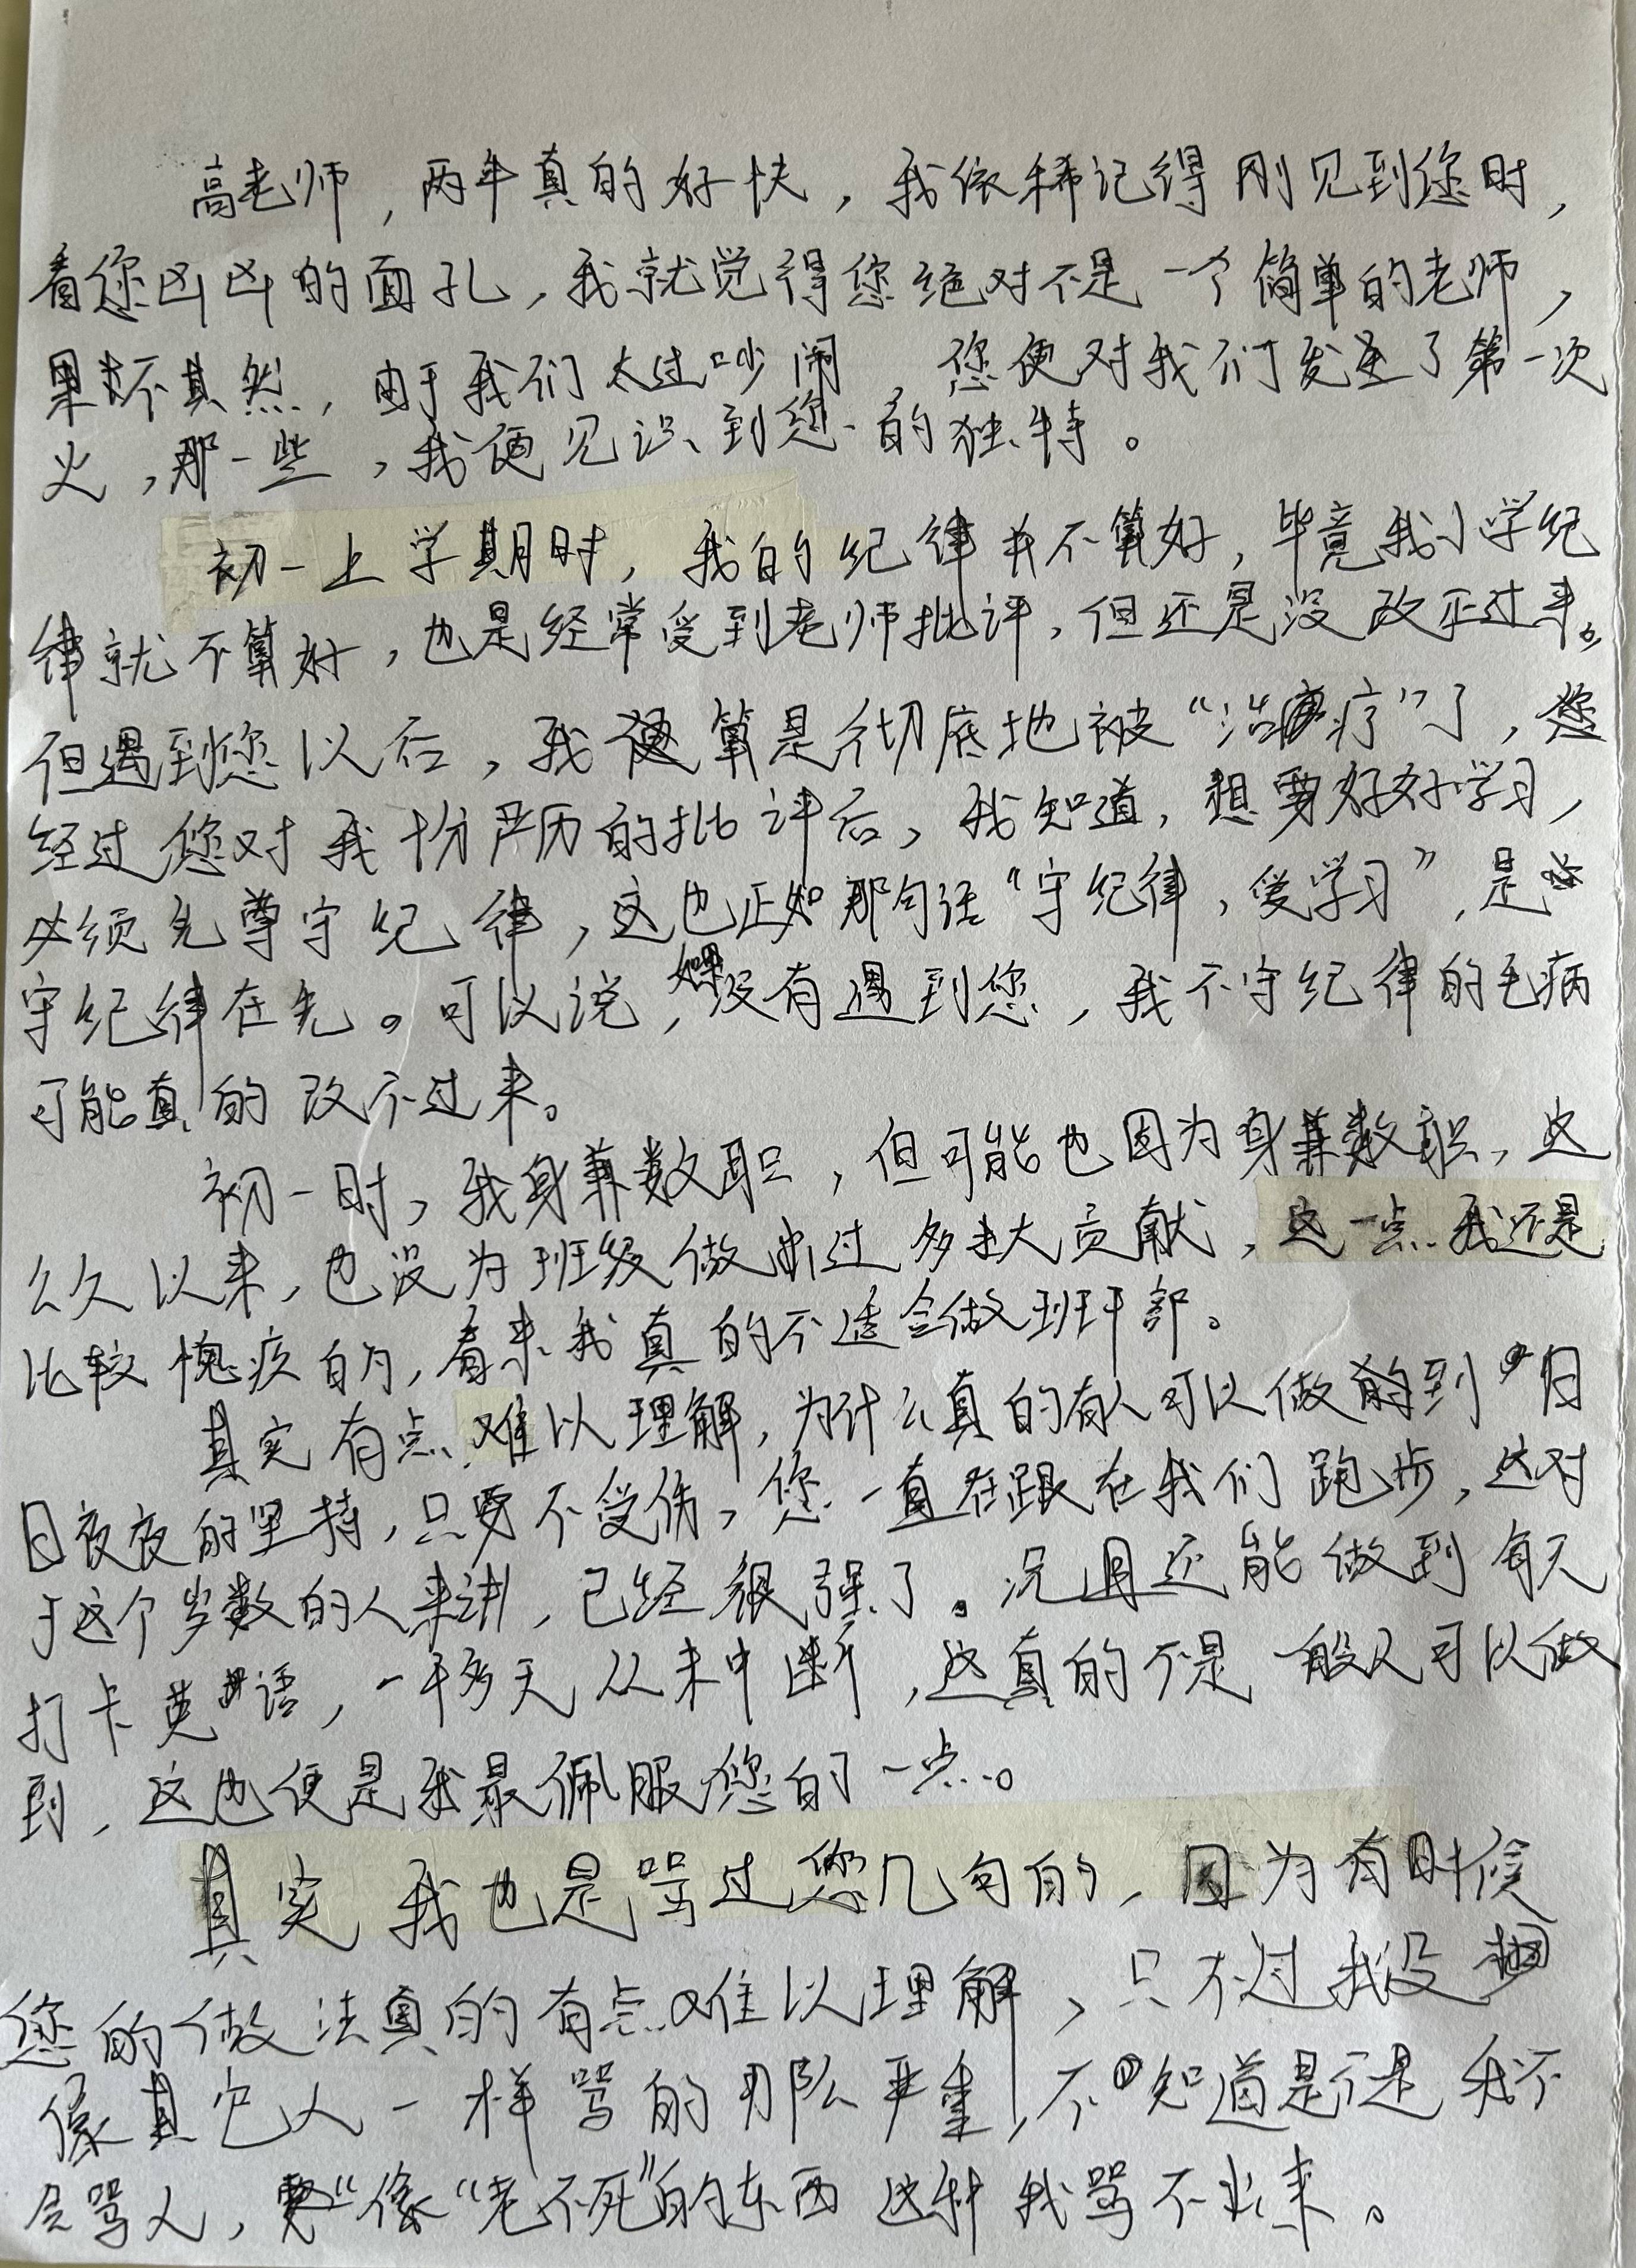 高老师，两年真的好快，我依稀记得刚见到您时，
看您凶凶的面孔，我就觉得您绝对不是一个简单的老师，
果不其然，由于我们太过吵闹，您便对我们发了第一次
火，那一些，我便见识到您的独特。
初一上学期时，我的纪律并不算好，毕竟我小学纪
律就不算好，也是经常受到老师批评，但还是没改正过来。
但遇到您以后，我便算是彻底地被“治疗”了，
经过您对我十分严历的批评后，我知道，想要好好学习，
必须先尊守纪律，这也正如那句话“守纪律，爱学习”，是
守纪律在先。可以说，如果没有遇到您，我不守纪律的毛病
可能真的改不过来。
初一时，我身兼数职，但可能也因为身兼数职，这
么久以来，也没为班级做出过多大贡献，这一点我还是
比较愧疚的，看来我真的不适合做班干部。
其实有点难以理解，为什么真的有人可以做到日
日夜夜的坚持，只要不受伤，您一直在跟在我们跑步，这对
于这个岁数的人来讲，已经很强了。况且还能做到每天
打卡英语，一千多天从未中断，这真的不是一般人可以做
到，这也便是我最佩服您的一点。
其实我也是骂过您几句的，因为有时候
您的做法真的有点难以理解，只不过我没
像其它人一样骂的那么严重，不知道是不是我不
会骂人，像“老不死”的东西这种我骂不出来。